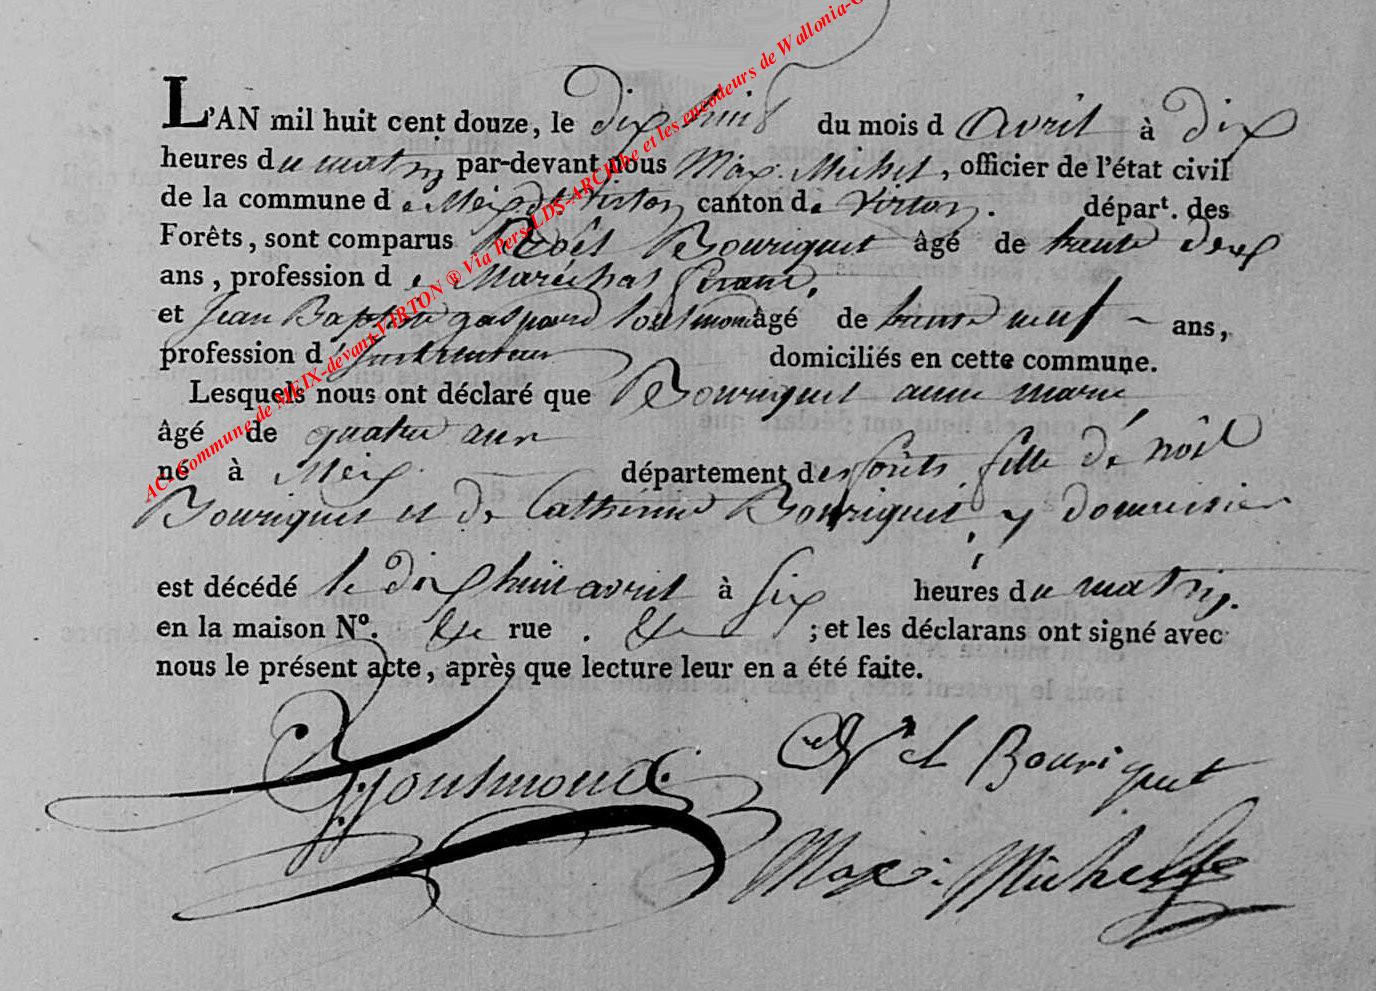 L'AN mil huit cent douze, le dix huit du mois d'Avril à dix
heures du matin par-devant nous Max. Michel, officier de l'état civil
de la commune de Meix dt Virton canton de Virton. départ. des
Forêts, sont comparus Noël Bouriquet âgé de trente deux
ans, profession de Maréchal ferant,
et Jean Baptiste gaspard toutmond âgé de trente neuf ans,
profession d'Instituteur domiciliés en cette commune.
Lesquels nous ont déclaré que Bouriquet anne marie
âgé de quatre ans
né à Meix département des forêts, fille de nôel
Bouriquet et de Catherine Bouriquet, y domicilies
est décédé le dix huit avril à six heures du matin.
en la maison N°. rue . ; et les déclarans ont signé avec
nous le présent acte, après que lecture leur en a été faite.
Bouriquet
Max: Michel
AC. Commune de MEIX-devant-VIRTON ® Via Pers-LDS-ARCHbe et les encodeurs de Wallonia-G